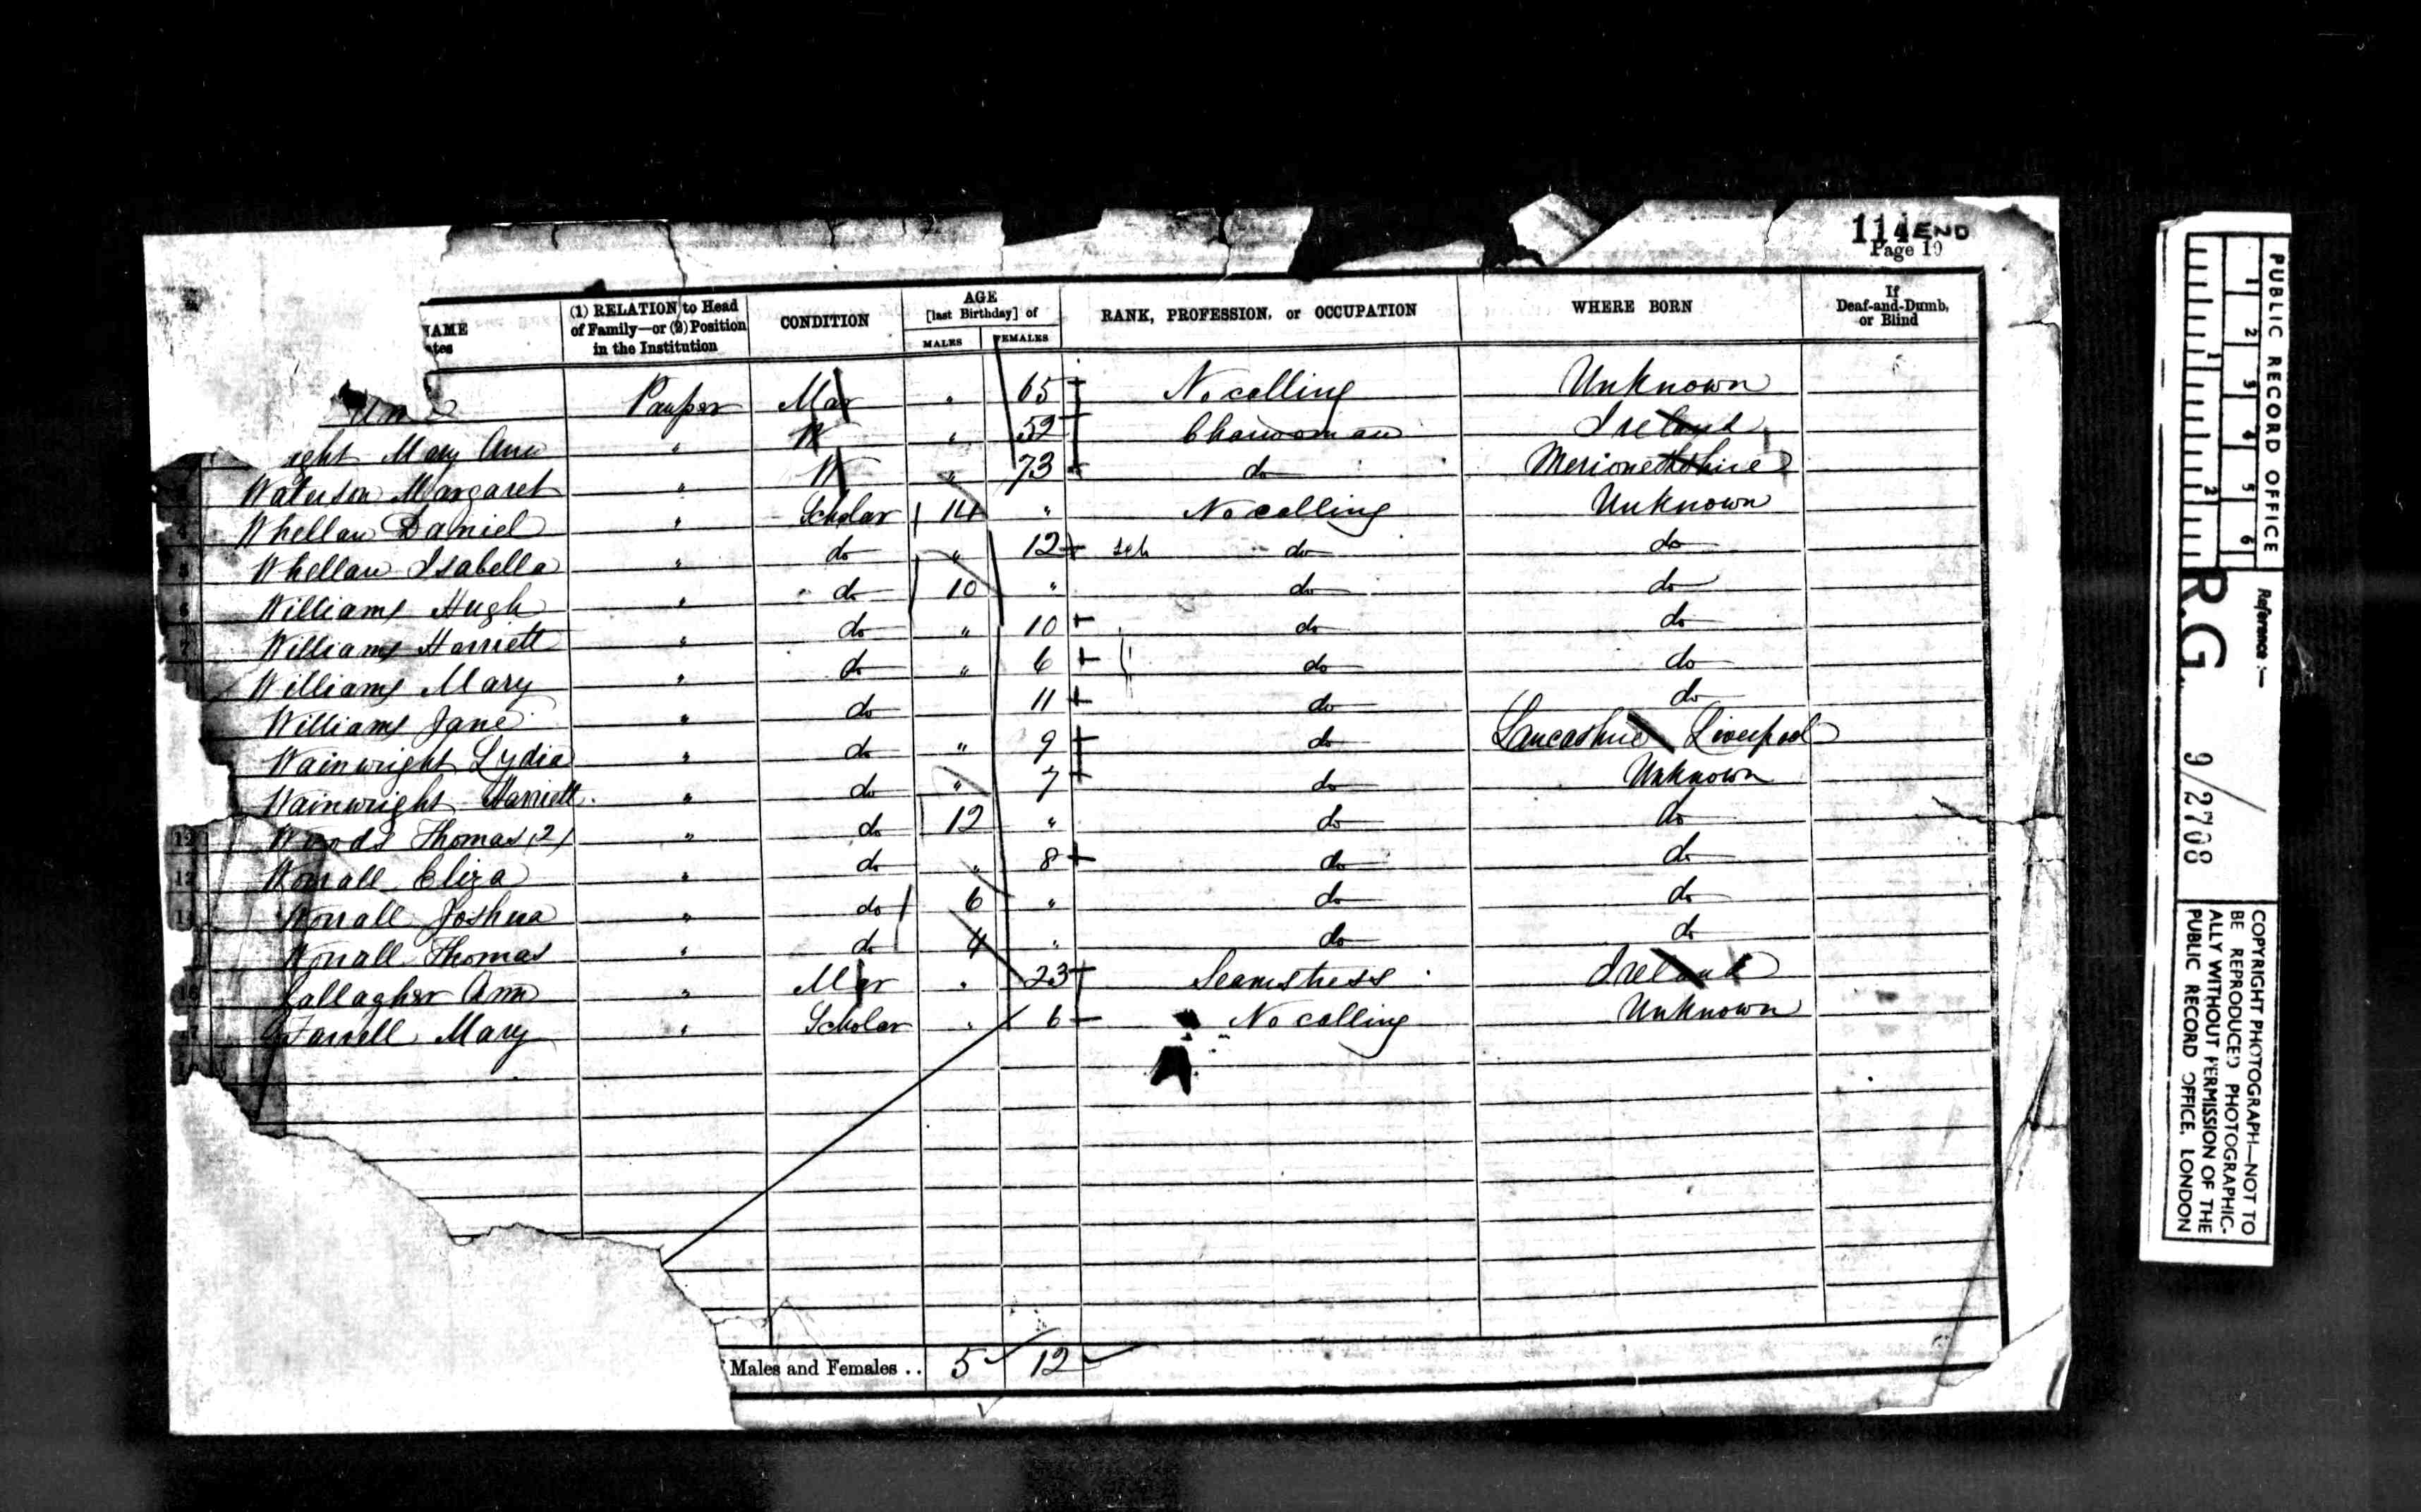 114 END
Page 19
NAME
(1) RELATION to Head of Family—or (2) Position in the Institution
CONDITION
AGE [last Birthday] of
MALES
FEMALES
RANK, PROFESSION, or OCCUPATION
WHERE BORN
If Deaf-and-Dumb, or Blind
Pauper Mar " 65 No calling Unknown
ight Mary Ann " W " 52 Charwoman Ireland
Waterson Margaret " W " 73 do Merionethshire
Whellan Daniel " Scholar 14 " No calling Unknown
Whellan Isabella " do " 12 sch do do
Williams Hugh " do 10 " do do
Williams Harriett " do " 10 do do
Williams Mary " do " 6 do do
Williams Jane " do 11 do do
Wainwright Lydia " do " 9 do Lancashire Liverpool
Wainwright Harriett " do " 7 do Unknown
12 Woods Thomas (2) " do 12 " do do
13 Worrall Eliza " do " 8 do do
14 Worrall Joshua " do 6 " do do
Worrall Thomas " do 4 " do do
16 Gallagher Ann " Mar " 23 Seamstress Ireland
Farrell Mary " Scholar " 6 No calling Unknown
Males and Females .. 5 12
PUBLIC RECORD OFFICE
1 2 3 4 5 6
1 2
Reference :—
R.G. 9/2708
COPYRIGHT PHOTOGRAPH—NOT TO
BE REPRODUCED PHOTOGRAPHIC-
ALLY WITHOUT PERMISSION OF THE
PUBLIC RECORD OFFICE, LONDON